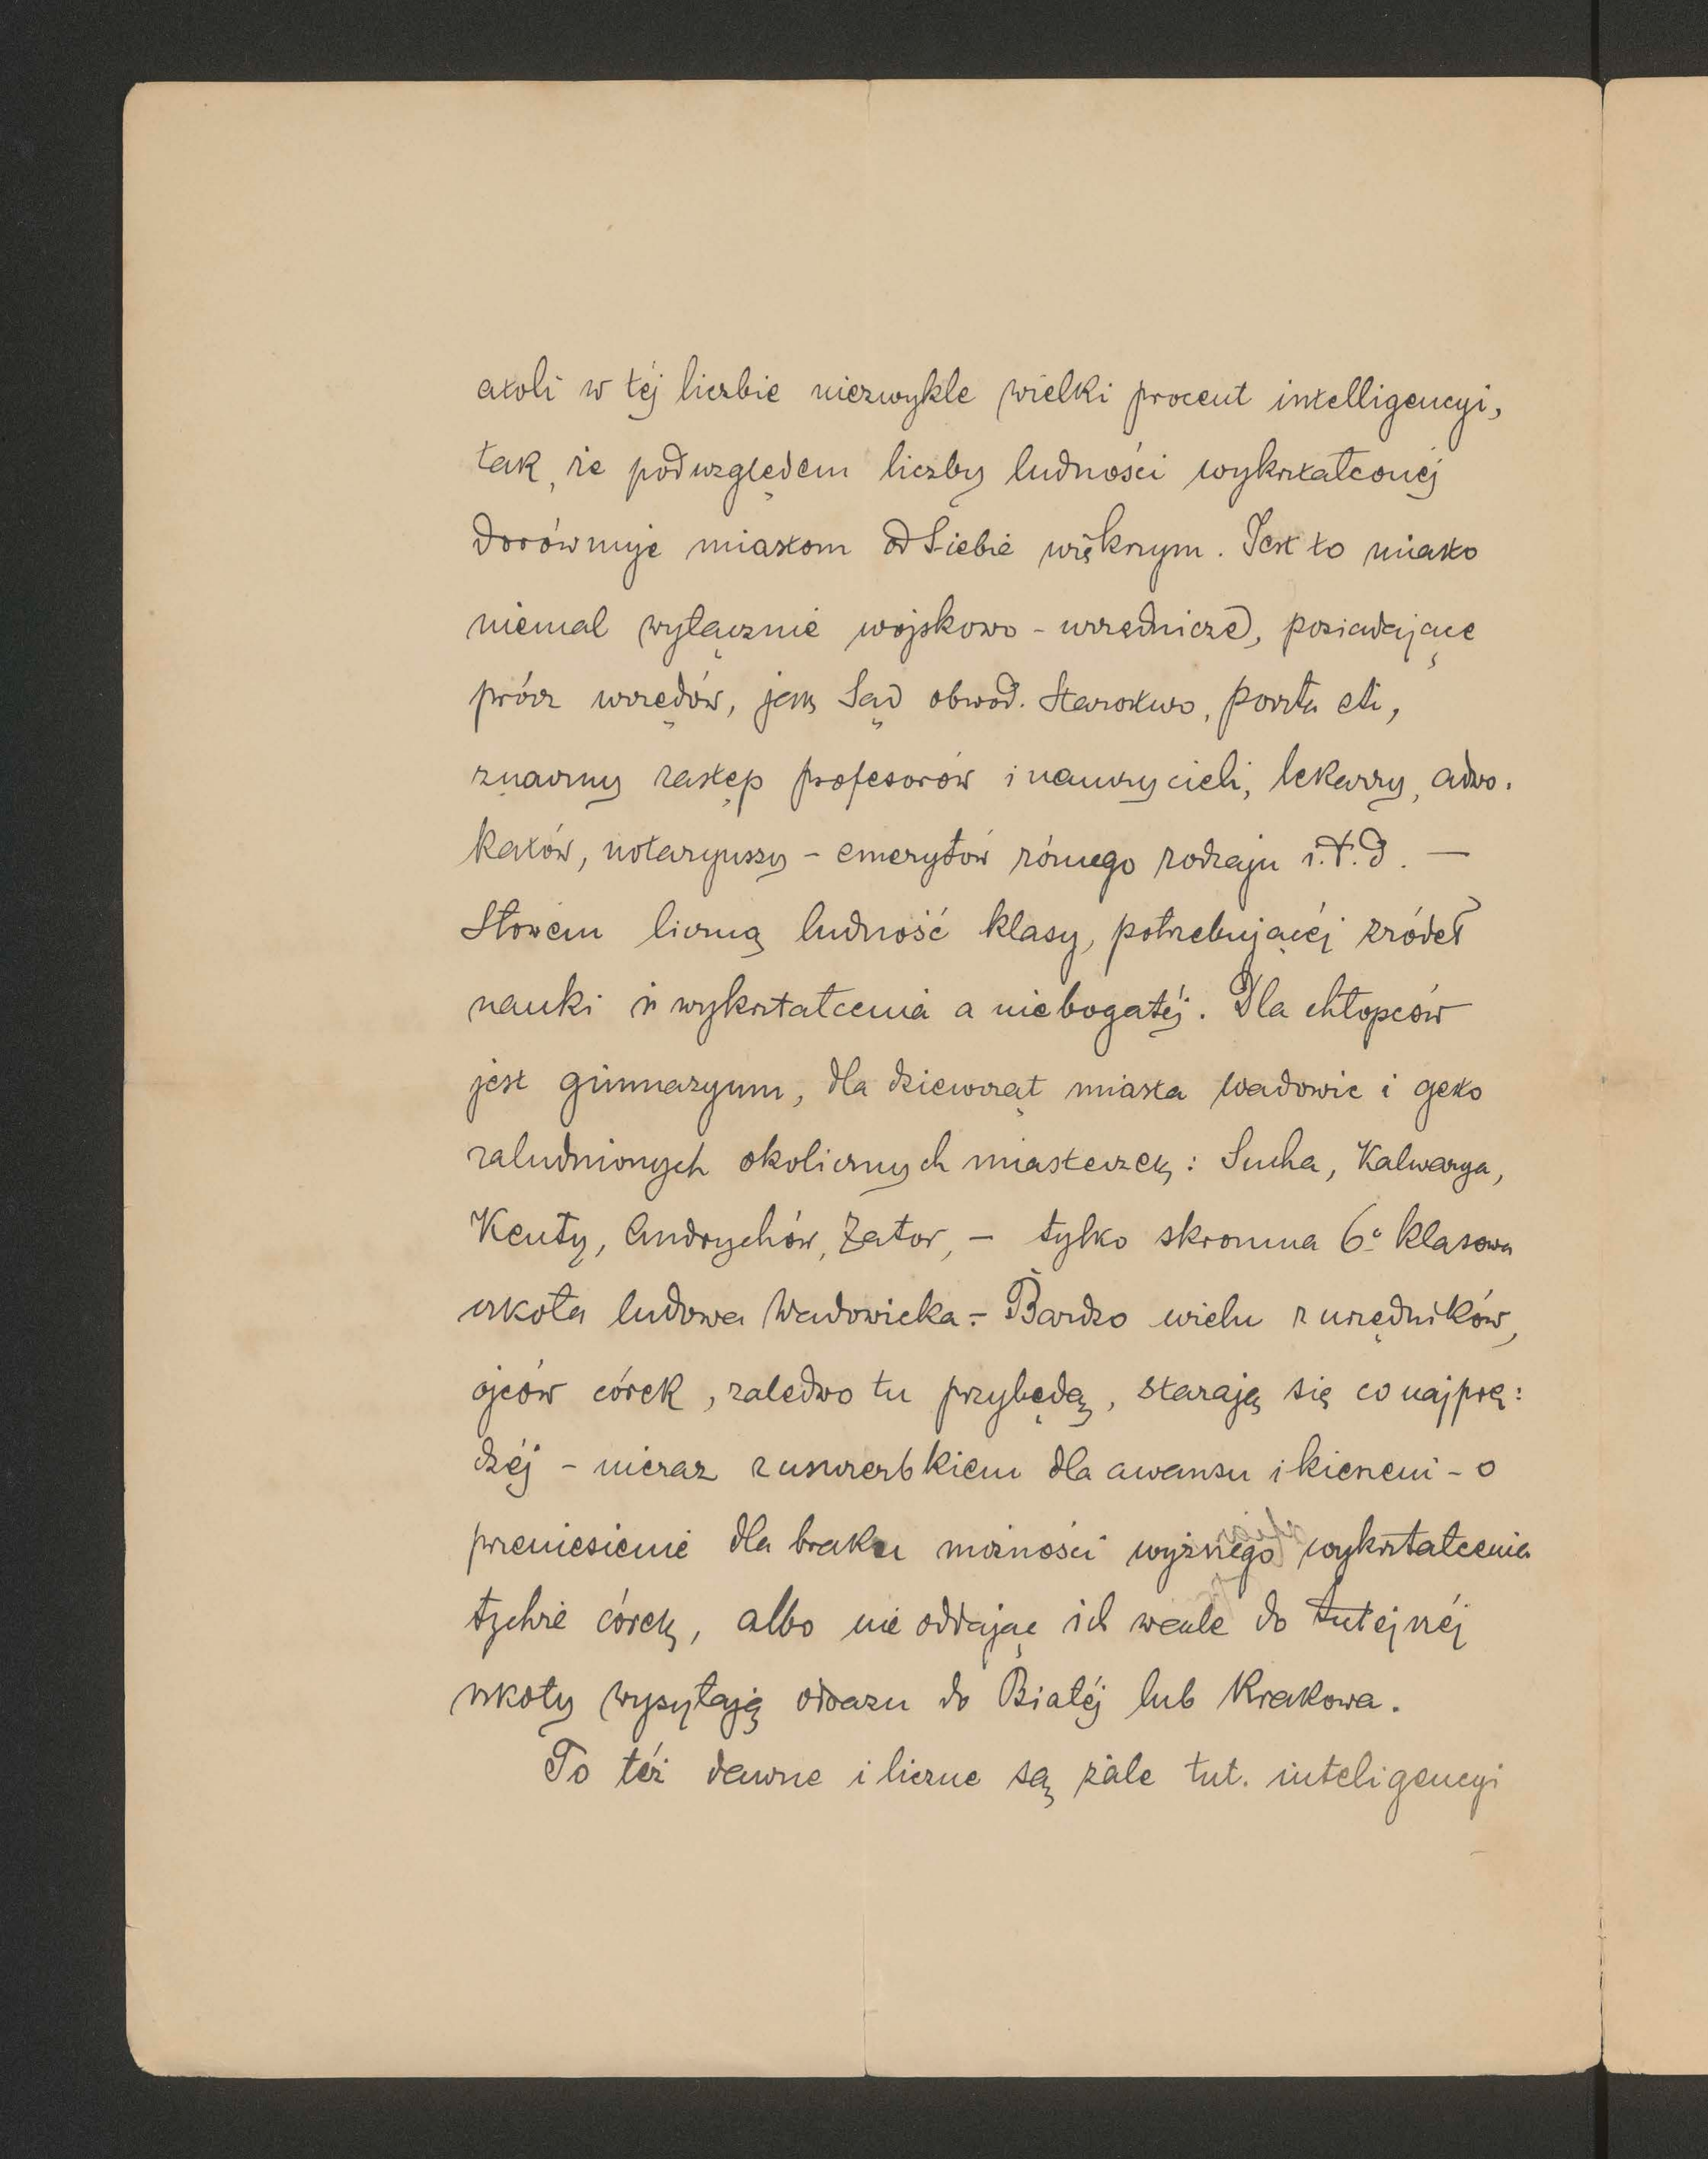 atoli w téj liczbie niezwykle wielki procent intelligencyi,
tak, że pod względem liczby ludności wykształconéj
dorównuje miastom od siebie większym. Jest to miasto
niemal wyłącznie wojskowo - urzędnicze, posiadające
prócz urzędów, jak Sąd obwod. Starostwo, poczta etc,
znaczny zastęp profesorów i nauczycieli, lekarzy, adwo-
katów, notaryuszy - emerytów różnego rodzaju i.t.d. —
Słowem liczną ludność klasy, potrzebującéj źródeł
nauki i wykształcenia a niebogatéj. Dla chłopców
jest gimnazyum, dla dziewcząt miasta Wadowic i gęsto
zaludnionych okolicznych miasteczek: Sucha, Kalwarya,
Kenty, Andrychów, Zator, - tylko skromna 6º klasowa
szkoła ludowa Wadowicka. - Bardzo wielu z urzędników,
ojców córek, zaledwo tu przybędą, starają się co najprę:
dzéj - nieraz z uszczerbkiem dla awansu i kieszeni - o
przeniesienie dla braku możności wyższego wykształcenia
tychże córek, albo nie oddając ich wcale do tutejszéj
szkoły wysyłają odrazu do Białéj lub Krakowa.
To téż dawne i liczne są żale tut. inteligencyi